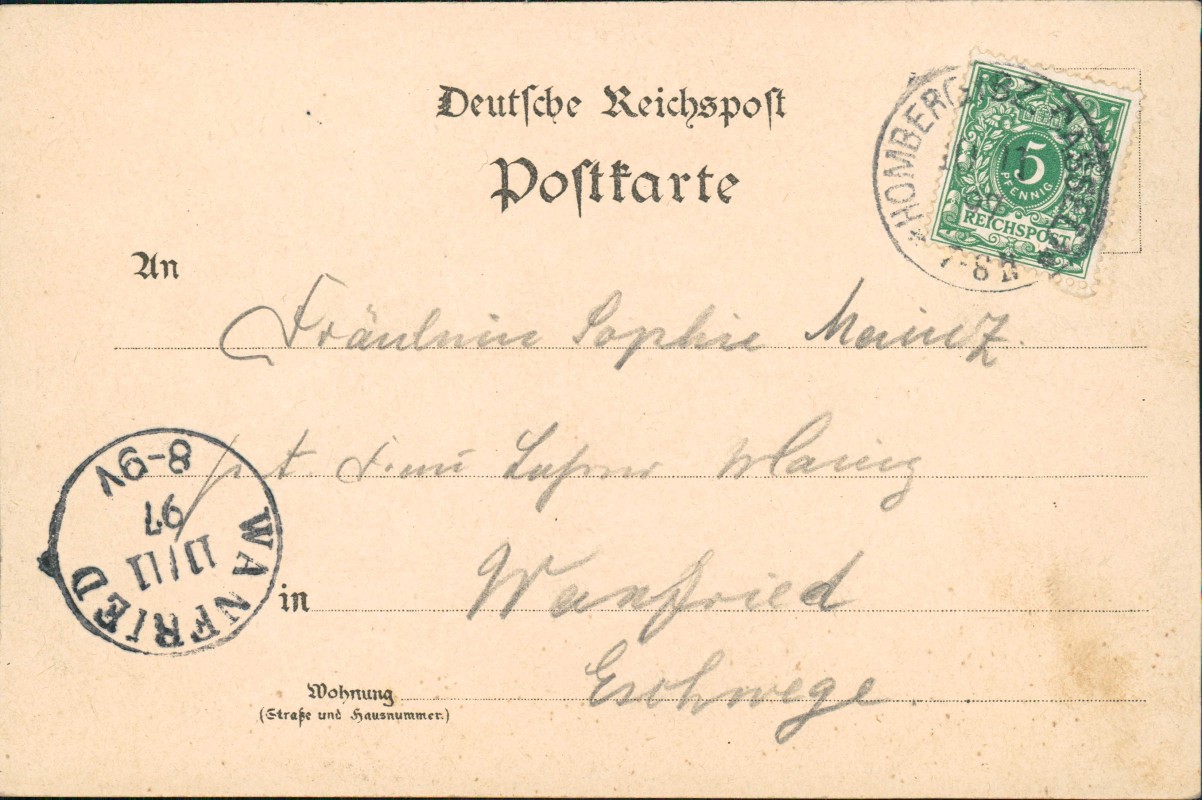 Deutsche Reichspost
Postkarte
HOMBERG BZ. CASSEL
11
97
7-8N
5
PFENNIG
REICHSPOST
An
Fräulein Sophie Mainz
Frau Mainz
8-9V
97
11/11
WANFRIED
in Wanfried
Eschwege
Wohnung
(Straße und Hausnummer.)